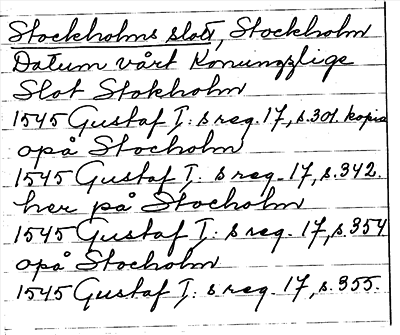 Stockholms slott, Stockholm
Datum vårt Konungzlige
Slot Stokholm
1545 Gustaf I: s reg. 17, s. 301. kopia
opå Stocholm
1545 Gustaf I: s reg. 17, s. 342.
her på Stocholm
1545 Gustaf I: s reg. 17, s. 354
opå Stocholm
1545 Gustaf I: s reg. 17, s. 355.